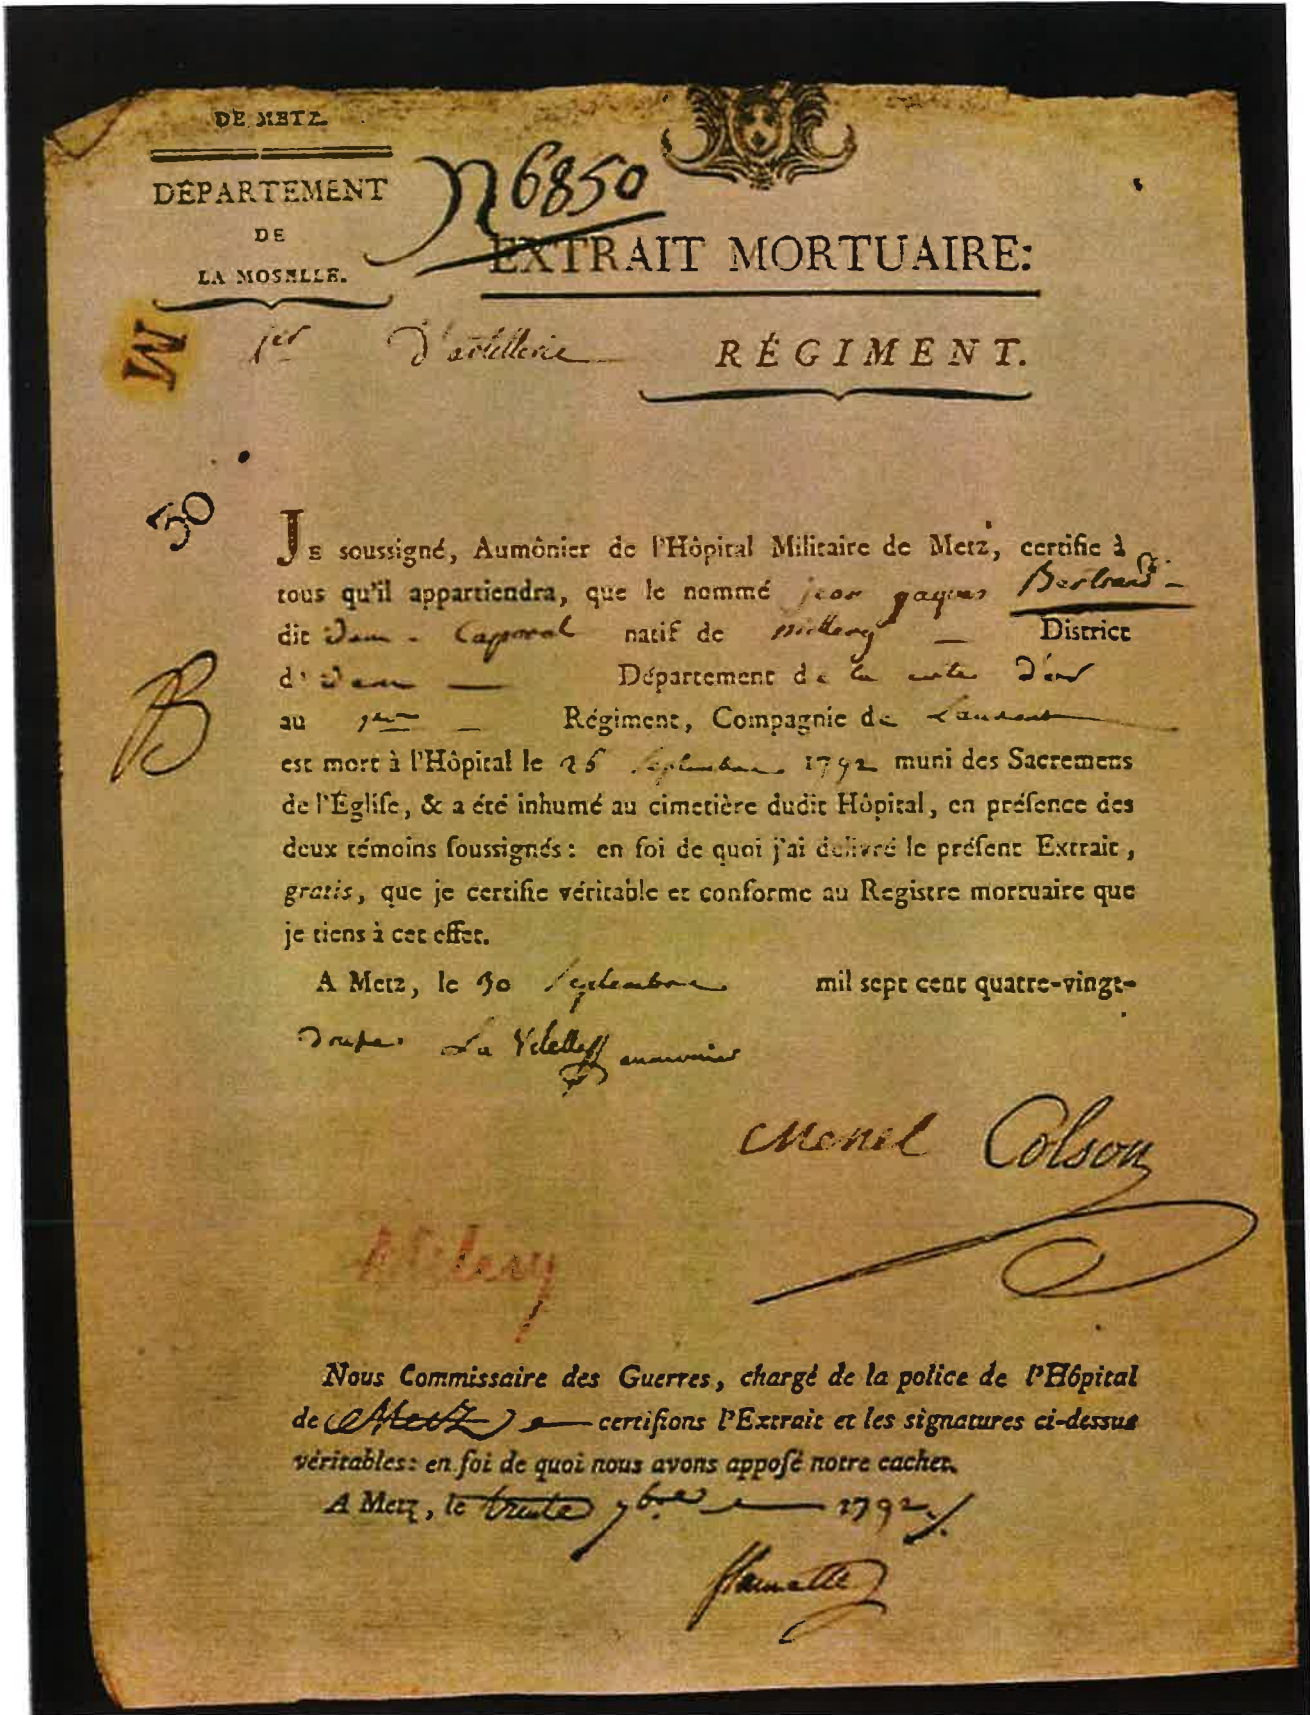 DE METZ.
DÉPARTEMENT
DE
LA MOSELLE.
N 6850
EXTRAIT MORTUAIRE:
1er D'artillerie RÉGIMENT.
M
50
JE soussigné, Aumônier de l'Hôpital Militaire de Metz, certifie à
tous qu'il appartiendra, que le nommé jean jaques Bertrand
dit Caporal natif de millery District
d' Département de la cote D'or
au 1er Régiment, Compagnie de
est mort à l'Hôpital le 26 Septembre 1792 muni des Sacremens
de l'Églife, & a été inhumé au cimetière dudit Hôpital, en préfence des
deux témoins foussignés: en foi de quoi j'ai délivré le préfent Extrait,
gratis, que je certifie véritable et conforme au Registre mortuaire que
je tiens à cet effet.
A Metz, le 30 Septembre mil sept cent quatre-vingt-
Douze. aumonier
B
Menel Colson
Nous Commissaire des Guerres, chargé de la police de l'Hôpital
de Metz certifions l'Extrait et les signatures ci-dessus
véritables: en foi de quoi nous avons appofé notre cachet.
A Metz, le trente 7bre 1792